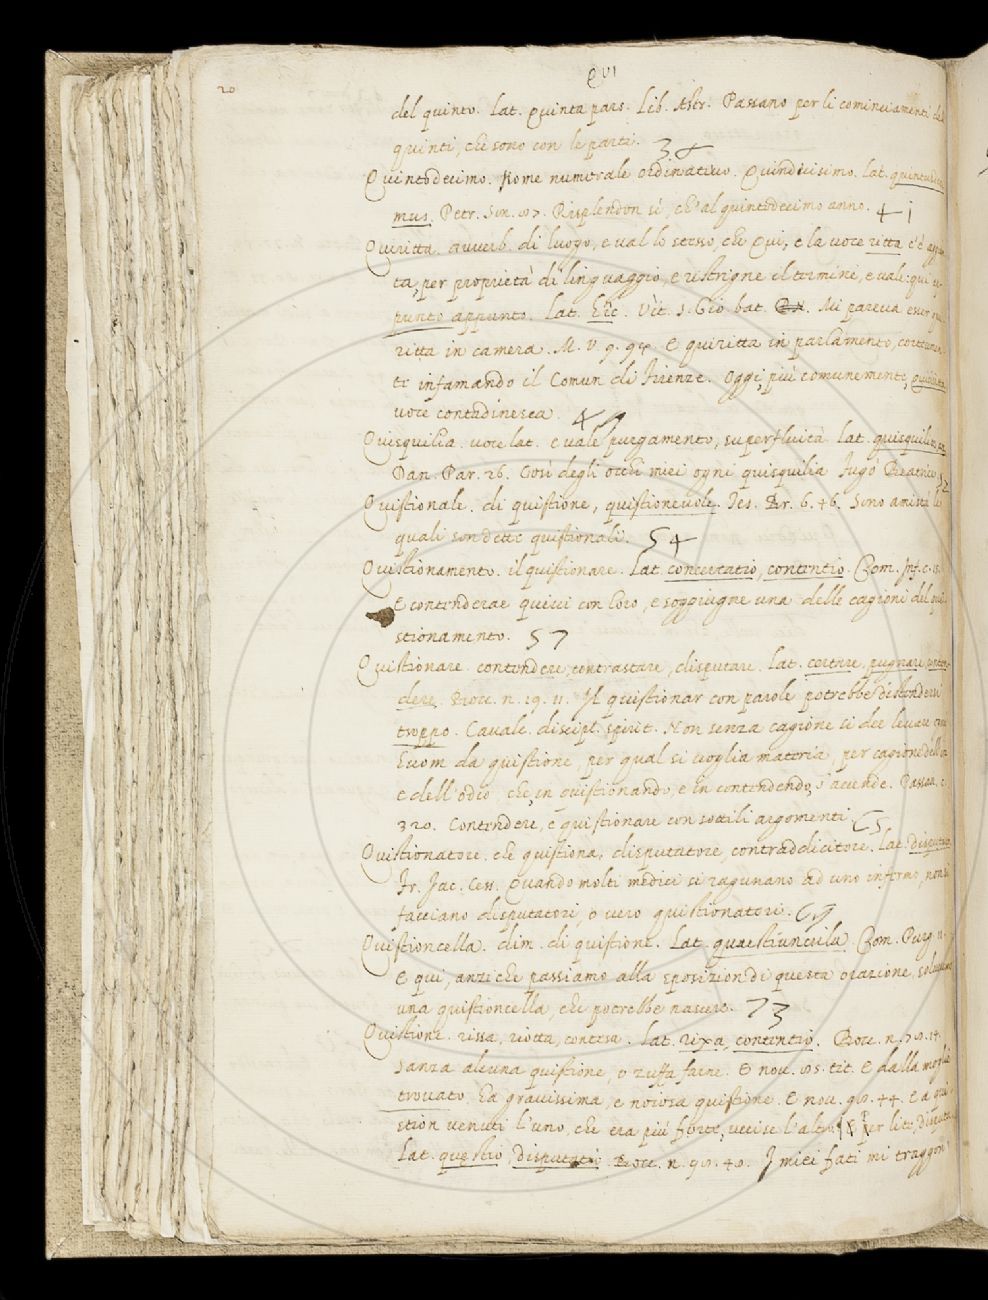 20
QVI
del quinto. Lat. Quinta pars. Lib. Astr. Passano per li cominciamenti del
quinti, che sono con le parti. 38
Quintodecimo. Nome numerale ordinativo. Quindicisimo. Lat. quintus
mus. Petr. Son. Risplendon sì, ch'al quintodecimo anno. 41
Quiritta. avverb. di luogo, e val lo stesso, che Qui, e la voce ritta c'è
ta, per proprietà di linguaggio, e ristrigne il termine, e vale: qui
punto appunto. Lat. Hic. Vit. S. Gio bat. Mi pareva esser
ritta in camera. M. V. 9. E quiritta in parlamento,
te infamando il Comun di Firenze. Oggi, più comunemente, quiritta
voce contadinesca. 49
Quisquilia. voce lat. e vale purgamento, superfluità Lat. quisquiliae
Dan. Par. 26. Così degli occhi miei ogni quisquilia Fugò Beatrice 52
Quistionale. di quistione, quistionevole. Tes. Br. 6. 46. Sono amistà le
quali son dette quistionali. 54
Quistionamento. il quistionare. Lat. concertatio, contentio. Com. Inf. c.
E contenderae quivi con loro, e soggiugne una delle cagioni del
stionamento. 57
Quistionare. contendere, contrastare, disputare. Lat. certare, pugnare,
dere. Bocc. n. 19. 11. Il quistionar con parole potrebbe distendersi
troppo. Cavalc. discipl. spirit. Non senza cagione si dee levare
l'uom da quistione, per qual si voglia materia, per cagione della
e dell'odio, che, in quistionando, e in contendendo, s'accende. Passav. c.
320. Contendere, e quistionare con sottili argomenti. 65
Quistionatore. che quistiona, disputatore, contraddicitore. Lat.
Fr. Jac. Cess. Quando molti medici si ragunano ad uno infermo,
facciano disputatori, o vero quistionatori. 69
Quistioncella. dim. di quistione. Lat. quaestiuncula. Com. Purg.
E qui, anzi che passiamo alla sposizion di questa orazione,
una quistioncella, che potrebbe nascere. 73
Quistione. rissa, riotta, contesa. Lat. rixa, contentio. Bocc. n.
Sanza alcuna quistione, o zuffa farne. E nov. tit. E dalla moglie
trovato. Ea gravissima, e noiosa quistione. E nov. 44. E a
stion venuti l'uno, che era più forte, uccise l'altro. Per lite, disputa
Lat. quęstio, disputatio. Bocc. n. 98. 40. I miei fati mi traggon